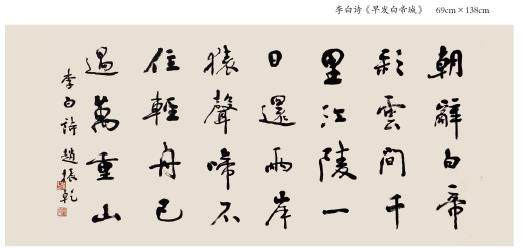 李白诗《早发白帝城》 69cm×138cm
朝辭白帝
彩雲間千
里江陵一
日還兩岸
猿聲啼不
住輕舟已
過萬重山
李白詩 趙振乾